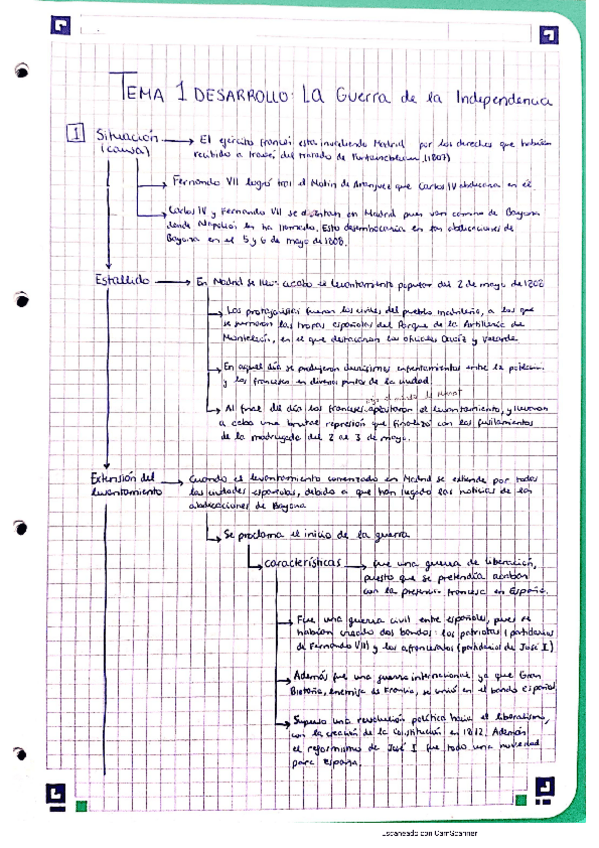 TEMA 1 DESARROLLO: LA Guerra de la Independencia
1 Situación → El ejército francés esta invadiendo Madrid por los derechos que habían
(causa) recibido a través del tratado de Fontainebleau (1807)
→ Fernando VII logró tras el Motín de Aranjuez que Carlos IV abdicara en él.
→ Carlos IV y Fernando VII se en Madrid pues van camino de Bayona
donde Napoleón los ha llamado. Esto desembocaría en las abdicaciones de
Bayona en el 5 y 6 de mayo de 1808.
Estallido → En Madrid se llevó a cabo el levantamiento popular del 2 de mayo de 1808
→ Los protagonistas fueron los civiles del pueblo madrileño, a los que
se sumaron las tropas españolas del Parque de la Artillería de
Monteleón, en el que destacaron los oficiales Daoíz y Velarde.
→ En aquel día se produjeron durísimos enfrentamientos entre la población
y los franceses en diversos puntos de la ciudad.
→ Al final del día los franceses aplastaron el levantamiento, y llevaron
a cabo una brutal represión que finalizó con los fusilamientos
de la madrugada del 2 al 3 de mayo.
Extensión del → Cuando el levantamiento comenzado en Madrid se extiende por todas
levantamiento las ciudades españolas, debido a que han llegado las noticias de las
abdicaciones de Bayona
→ Se proclama el inicio de la guerra
→ características → Fue una guerra de liberación,
puesto que se pretendía acabar
con la presencia francesa en España.
→ Fue una guerra civil entre españoles, pues se
habían creado dos bandos: los patriotas (partidarios
de Fernando VII) y los afrancesados (partidarios de José I)
→ Además fue una guerra internacional ya que Gran
Bretaña, enemiga de Francia, se unió en el bando español
→ Supuso una revolución política hacia el liberalismo,
con la creación de la Constitución en 1812. Además
el reformismo de José I fue todo una novedad
para España.
Escaneado con CamScanner